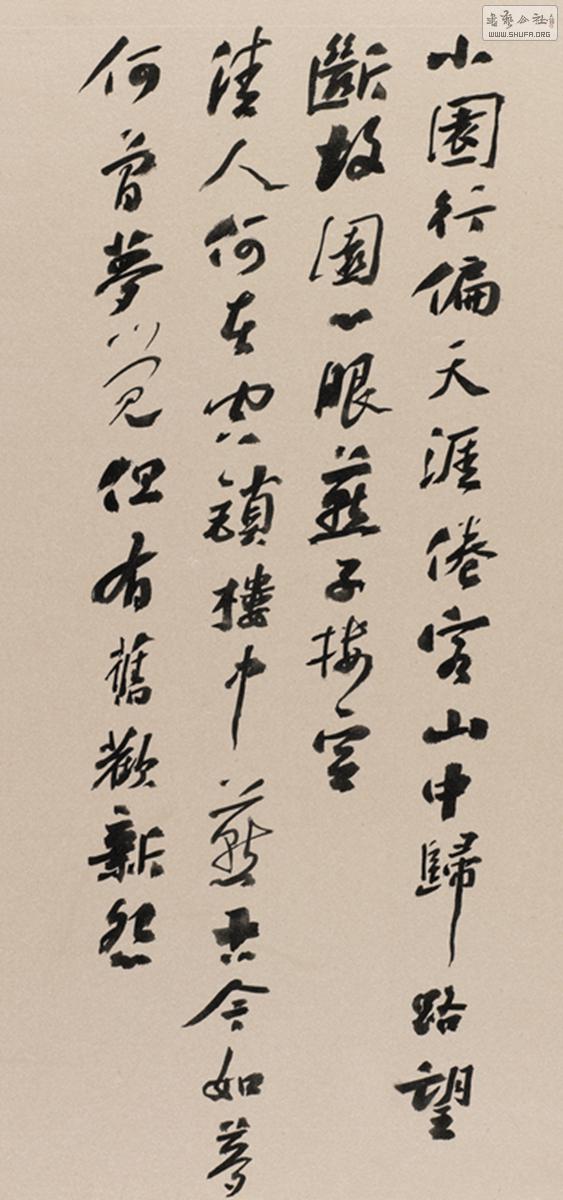 小園行偏天涯倦客山中歸路望
斷故園心眼燕子樓空
佳人何在空鎖樓中燕古今如夢
何曾夢覺但有舊歡新怨
書藝公社
WWW.SHUFA.ORG